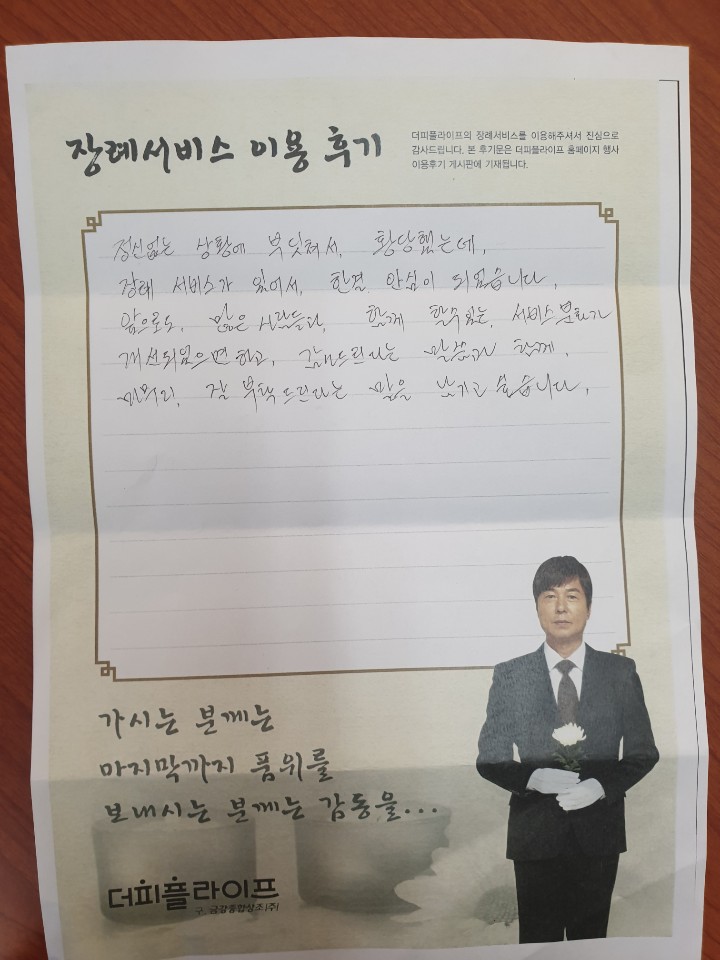 장례서비스 이용 후기
더피플라이프의 장례서비스를 이용해주셔서 진심으로
감사드립니다. 본 후기문은 더피플라이프 홈페이지 행사
이용후기 게시판에 기재됩니다.
정신없는 상황에 부딪쳐서, 황당했는데,
장례 서비스가 있어서, 한결 안심이 되었습니다,
앞으로도, 많은 사람들과, 함께 할수있는, 서비스문화가
개선되었으면 하고, 감사드린다는 말씀과 함께,
마무리, 잘 부탁드린다는 말을 남기고 싶습니다,
가시는 분께는
마지막까지 품위를
보내시는 분께는 감동을...
더피플라이프
구. 금강종합상조(주)